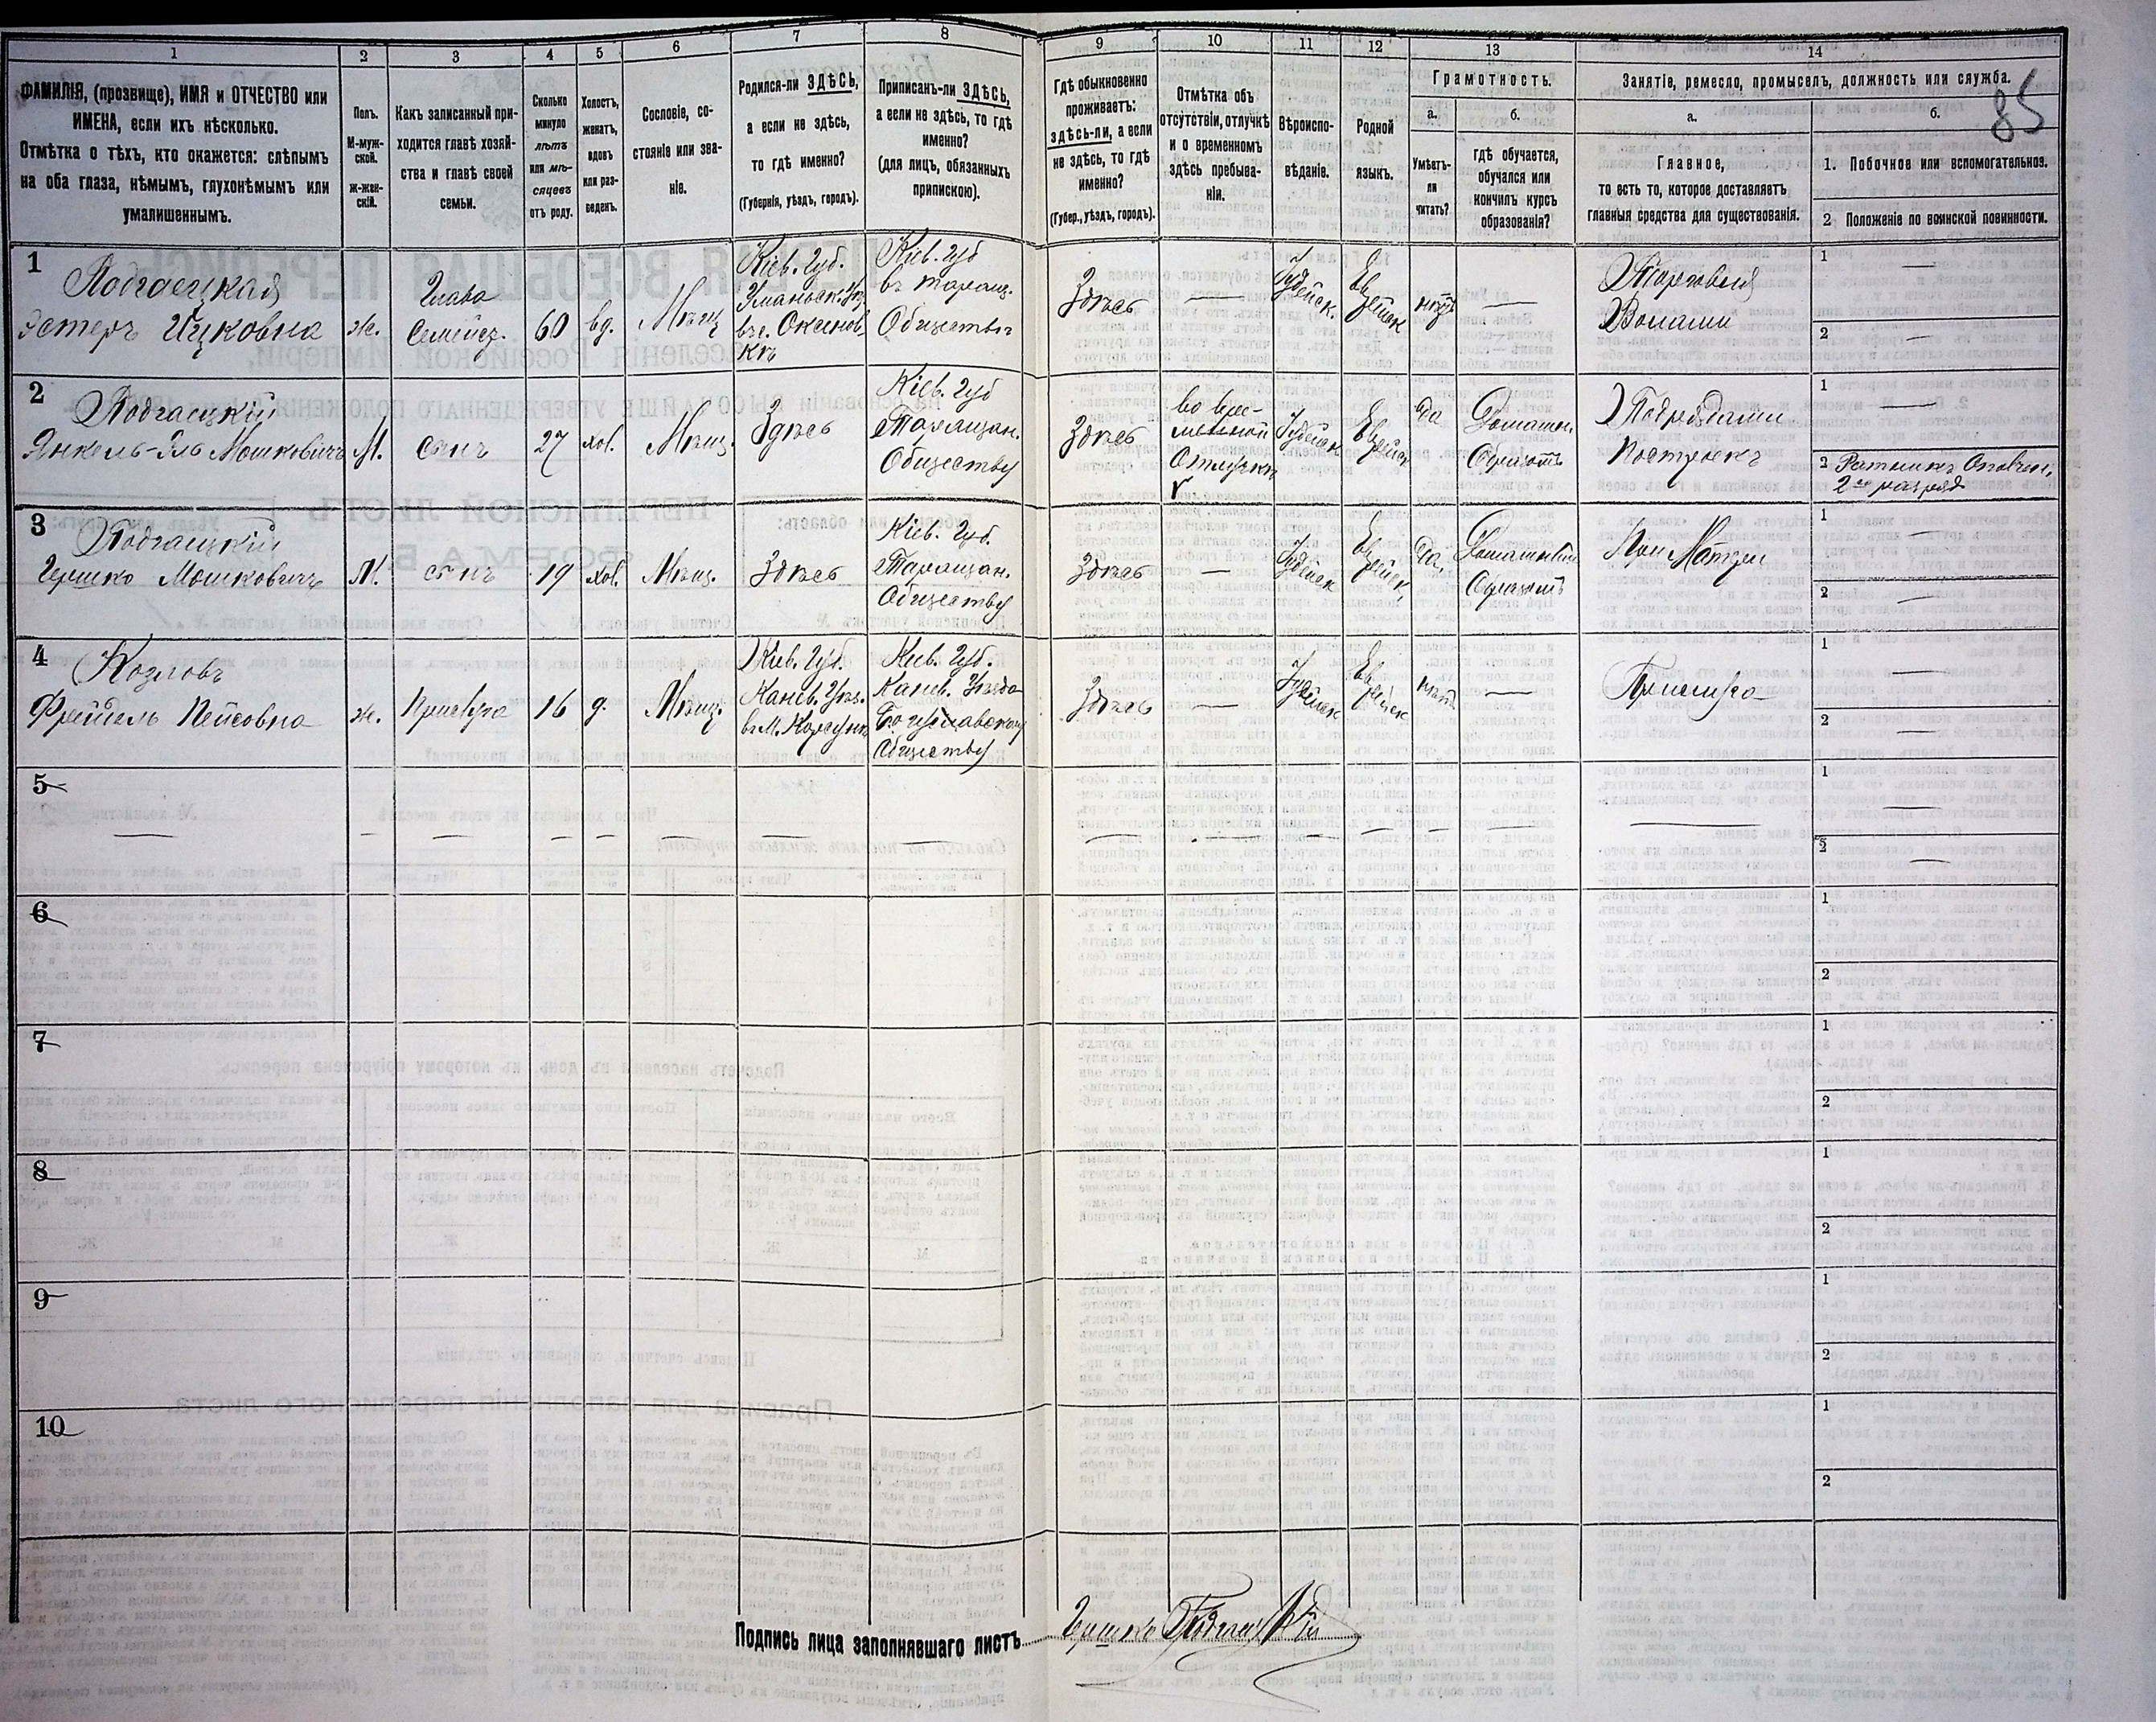 1 2 3 4 5 6 7 8 9 10 11 12 13 14
ФАМИЛІЯ, (прозвище), ИМЯ и ОТЧЕСТВО или
ИМЕНА, если ихъ нѣсколько.
Отмѣтка о тѣхъ, кто окажется: слѣпымъ
на оба глаза, нѣмымъ, глухонѣмымъ или
умалишеннымъ.
Полъ.
М-муж-
ской.
ж-жен-
скій.
Какъ записанный при-
ходится главѣ хозяй-
ства и главѣ своей
семьи.
Сколько
минуло
лѣтъ
или мѣ-
сяцевъ
отъ роду.
Холостъ,
женатъ,
вдовъ
или раз-
веденъ.
Сословіе, со-
стояніе или зва-
ніе.
Родился-ли ЗДѢСЬ,
а если не здѣсь,
то гдѣ именно?
(Губернія, уѣздъ, городъ).
Приписанъ-ли ЗДѢСЬ,
а если не здѣсь, то гдѣ
именно?
(для лицъ, обязанныхъ
припискою).
Гдѣ обыкновенно
проживаетъ:
здѣсь-ли, а если
не здѣсь, то гдѣ
именно?
(Губер., уѣздъ, городъ).
Отмѣтка объ
отсутствіи, отлучкѣ
и о временномъ
здѣсь пребыва-
ніи.
Вѣроиспо-
вѣданіе.
Родной
языкъ.
Грамотность.
а.
Умѣетъ-
ли
читать?
б.
гдѣ обучается,
обучался или
кончилъ курсъ
образованія?
Занятіе, ремесло, промыселъ, должность или служба.
85
а.
Главное,
то есть то, которое доставляетъ
главныя средства для существованія.
б.
1. Побочное или вспомогательное.
2 Положеніе по воинской повинности.
1
Подгаецкая
Эстеръ Ицковна
ж.
Глава
Семейст.
60
вд.
Мѣщ
Кіев. Губ.
Уманьск. Уѣз.
въ с. Оксанов
кѣ
Кіев. Губ
въ Таращ.
Обществѣ
Здѣсь
—
Іудейск.
Ев
рейск
нѣтъ
—
Торговля
Волами
1 —
2 —
2
Подгаецкій
Янкель-Эль Мошковичъ
М.
сынъ
27
хол.
Мѣщ.
Здѣсь
Кіев. Губ
Таращан.
Обществу
Здѣсь
во вре-
менной
Отлучкѣ
Іудейск
Еврейск
да
Домашн.
Подрядами
Построекъ
1 —
2 Ратникъ Ополчен.
2го разряд
3
Подгаецкій
Гершко Мошковичъ
М.
сынъ
19
хол.
Мѣщ.
Здѣсь
Кіев. Губ.
Таращан.
Обществу
Здѣсь
—
Іудейск
Еврейск,
Да,
Домашній
При Матери
1 —
2 —
4
Козловъ
Фрейдель Пейсовна
ж.
Прислуга
16
д.
Мѣщ.
Кіев. Губ.
Канев. Уѣз.
въ М. Корсунѣ
Кіев. Губ.
Канев. Уѣзда
Богуславскому
Обществу
Здѣсь
—
Іудейск
Ев
рейск
нѣтъ
—
Прислуга
1 —
2 —
5
1 —
2 —
6
1
2
7
1
2
8
1
2
9
1
2
10
1
2
Подпись лица заполнявшаго листъ Гершко Подгаецкій